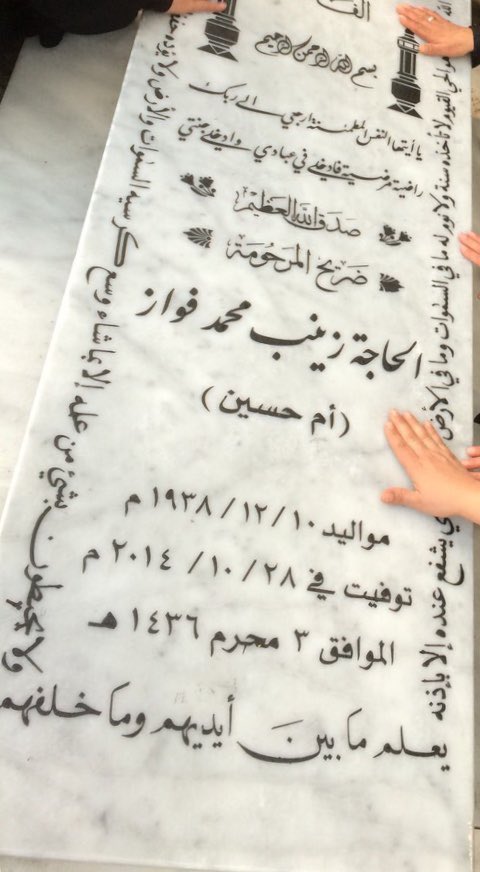 بسم الله الرحمن الرحيم
يا أيتها النفس المطمئنة ارجعي إلى ربك
راضية مرضية فادخلي في عبادي وادخلي جنتي
صدق الله العظيم
ضريح المرحومة
الحاجة زينب محمد فواز
(أم حسين)
مواليد ١٠/ ١٢/ ١٩٣٨ م
توفيت في ٢٨/ ١٠/ ٢٠١٤ م
الموافق ٣ محرم ١٤٣٦ هـ
هو الحي القيوم لا تأخذه سنة ولا نوم له ما في السموات وما في الأرض يشفع عنده إلا بإذنه
يعلم ما بين أيديهم وما خلفهم
ولا يحيطون بشيء من علمه إلا بما شاء وسع كرسيه السموات والأرض ولا يؤده